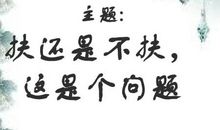 主题：
扶还是不扶，
这是个问题